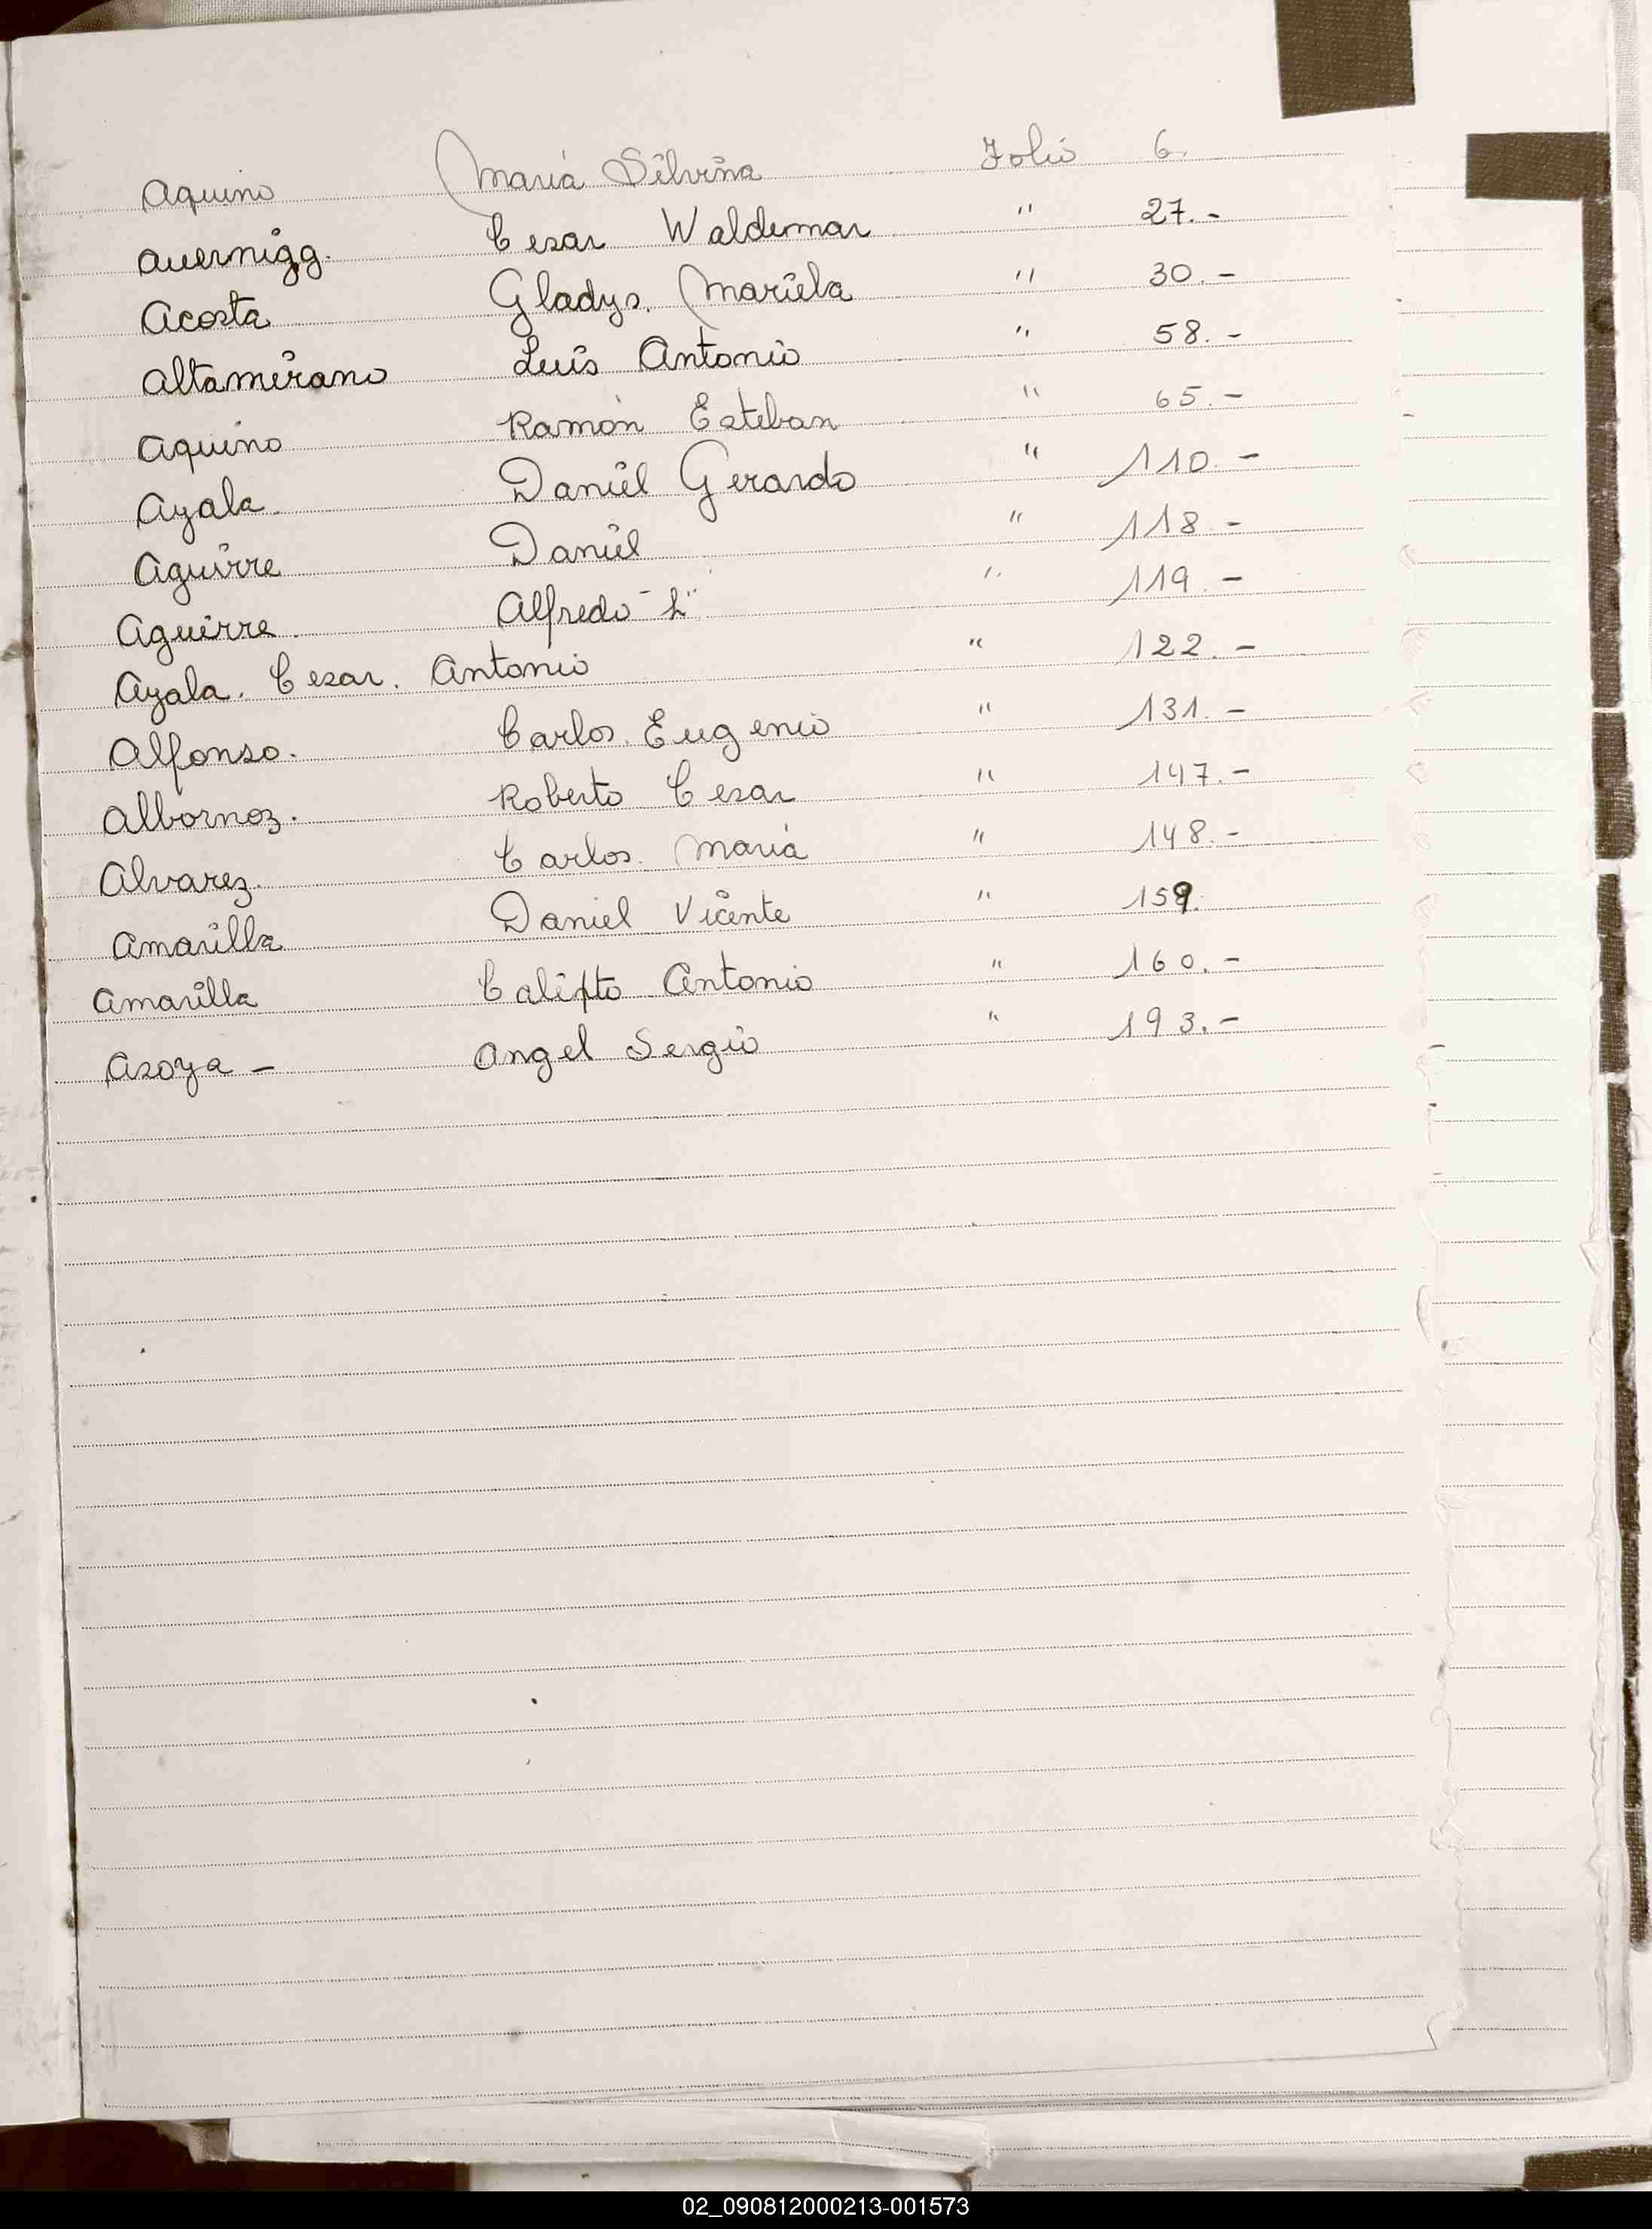 Aquino María Silvina Folio 6.
Auernigg. Cesar Waldemar " 27.-
Acosta Gladys. Mariela " 30.-
Altamirano Luis Antonio " 58.-
Aquino Ramón Esteban " 65.-
Ayala. Daniel Gerardo " 110.-
Aguirre Daniel " 118.-
Aguirre. Alfredo "L" " 119.-
Ayala. Cesar. Antonio " 122.-
Alfonso. Carlos. Eugenio " 131.-
Albornoz. Roberto Cesar " 147.-
Alvarez. Carlos. María " 148.-
Amarilla Daniel Vicente " 159.
Amarilla Calixto Antonio " 160.-
Asoya - Angel Sergio " 193.-
02_090812000213-001573